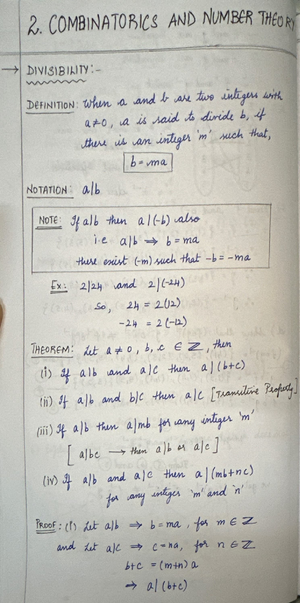 2. COMBINATORICS AND NUMBER THEORY
→ DIVISIBILITY:-
DEFINITION: When a and b are two integers with
a≠0, a is said to divide b, if
there is an integer 'm' such that,
b = ma
NOTATION: a|b
NOTE: If a|b then a|(-b) also
i.e a|b ⇒ b = ma
there exist (-m) such that -b = -ma
Ex: 2|24 and 2|(-24)
So, 24 = 2(12)
-24 = 2(-12)
THEOREM: Let a≠0, b, c ∈ ℤ, then
(i) If a|b and a|c then a|(b+c)
(ii) If a|b and b|c then a|c [Transitive Property]
(iii) If a|b then a|mb for any integer 'm'
[a|bc → then a|b or a|c]
(iv) If a|b and a|c then a|(mb+nc)
for any integer 'm' and 'n'
PROOF: (i) Let a|b ⇒ b = ma, for m ∈ ℤ
and Let a|c ⇒ c = na, for n ∈ ℤ
b+c = (m+n)a
⇒ a|(b+c)